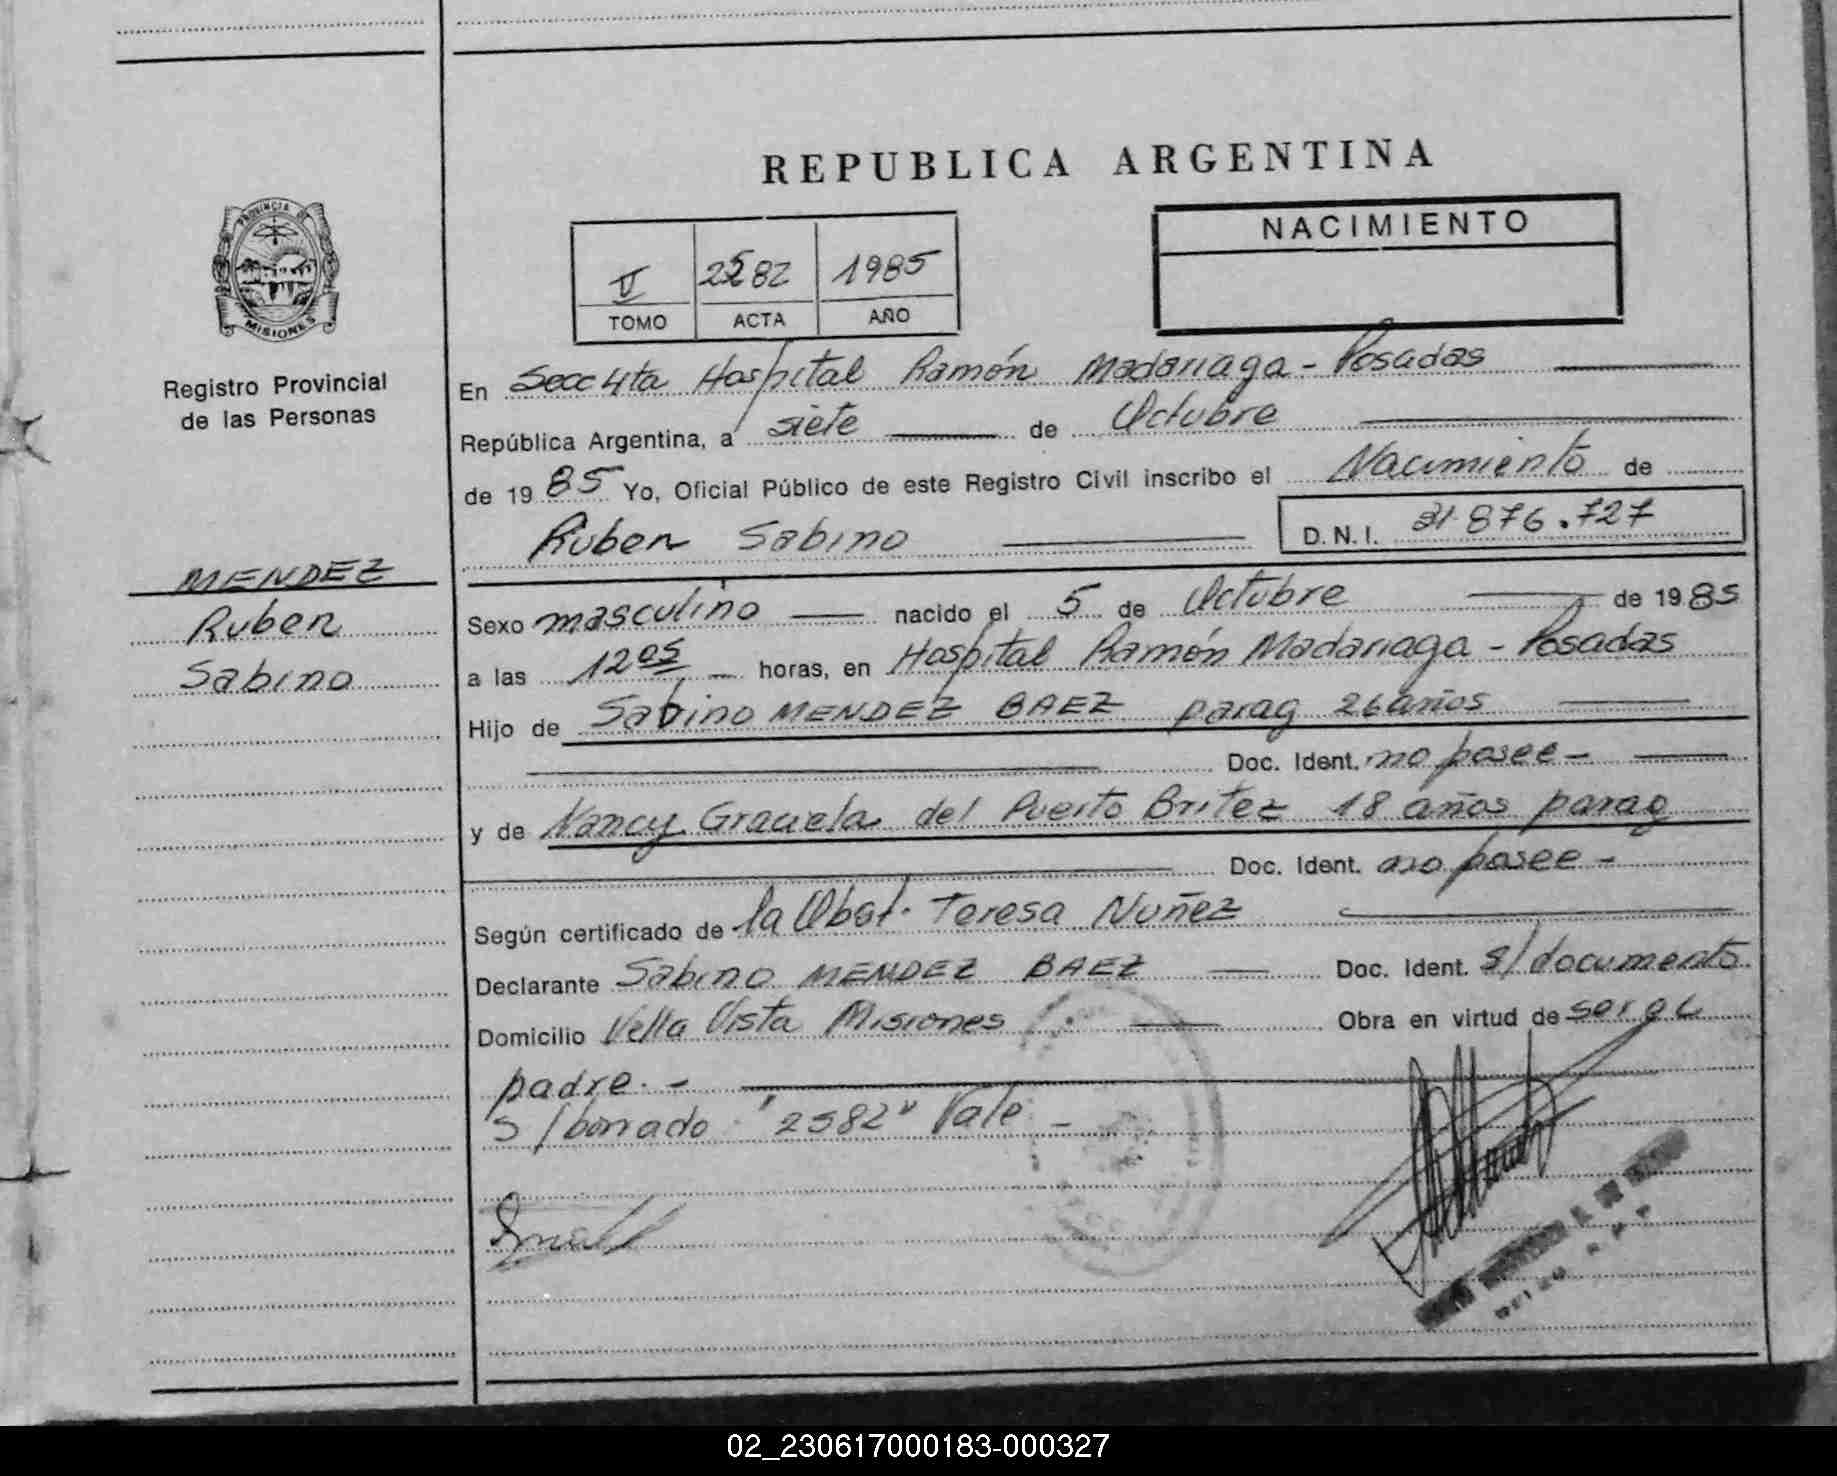 REPUBLICA ARGENTINA
PROVINCIA DE
MISIONES
Registro Provincial
de las Personas
NACIMIENTO
V 2582 1985
TOMO ACTA AÑO
En Secc 4ta Hospital Ramón Madariaga - Posadas
República Argentina, a siete de Octubre
de 1985 Yo, Oficial Público de este Registro Civil inscribo el Nacimiento de
Ruben Sabino D.N.I. 31.876.727
MENDEZ
Ruben
Sabino
Sexo masculino nacido el 5 de Octubre de 1985
a las 12 05 horas, en Hospital Ramón Madariaga - Posadas
Hijo de Sabino MENDEZ BAEZ parag 26 años
Doc. Ident. no posee -
y de Nancy Graciela del Puerto Britez 18 años parag
Doc. Ident. no posee -
Según certificado de la Obst. Teresa Nuñez
Declarante Sabino MENDEZ BAEZ Doc. Ident. s/documento
Domicilio Vella Vista Misiones Obra en virtud de ser el
padre. -
s/borrado "2582" Vale -
02_230617000183-000327